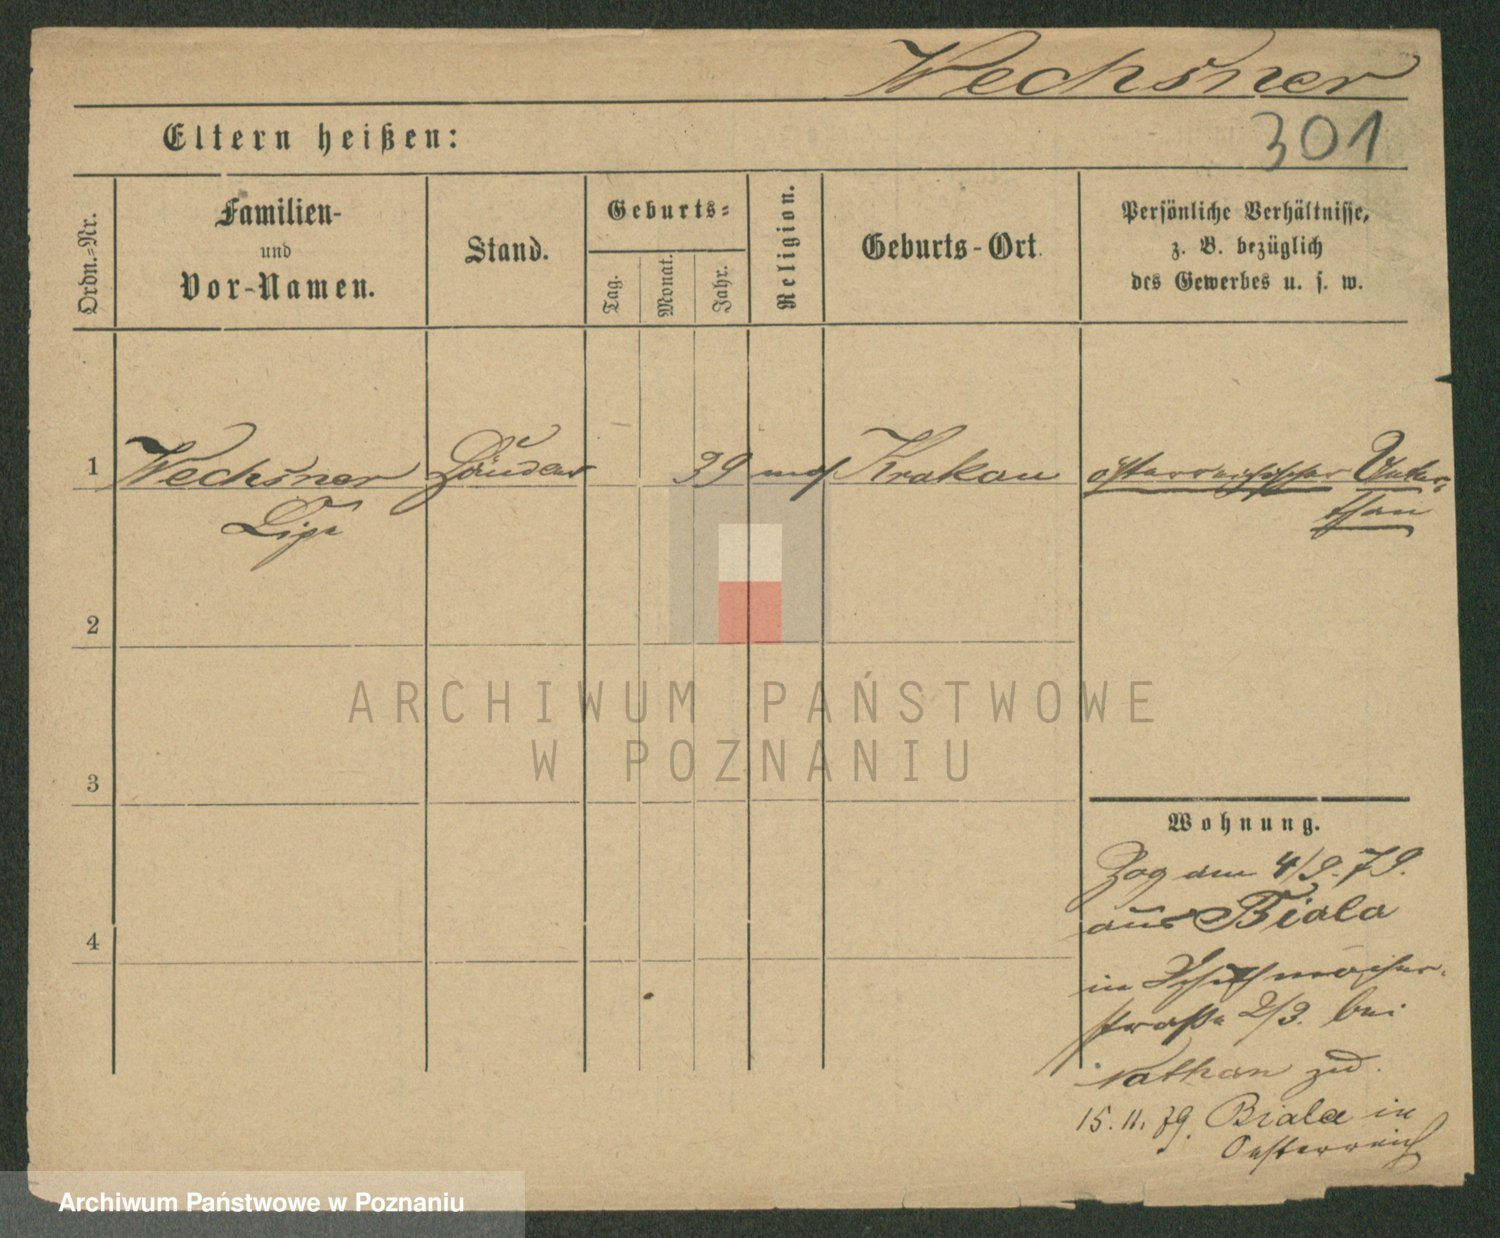 Wechsner
Eltern heißen:
301
Ordn.-Nr.
Familien-
und
Vor-Namen.
Stand.
Geburts-
Tag.
Monat.
Jahr.
Religion.
Geburts-Ort.
Persönliche Verhältnisse,
z. B. bezüglich
des Gewerbes u. s. w.
1
Wechsner
39
mos
Krakau
österreichischer Unter-
than
2
3
4
ARCHIWUM PAŃSTWOWE
W POZNANIU
Wohnung.
Zog am 4/9.79.
aus Biala
in Schuhmacher-
straße 2/3. bei
Nathan zu.
15.11.79. Biala in
Oesterreich
Archiwum Państwowe w Poznaniu